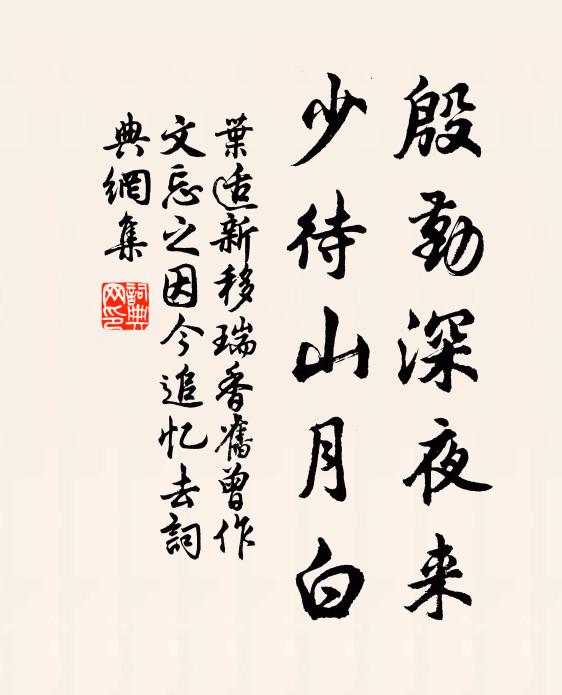 殷勤深夜来
少待山月白
葉适新移瑞香舊曾作
文忘之因今追忆去詞
典網集
詞典网印